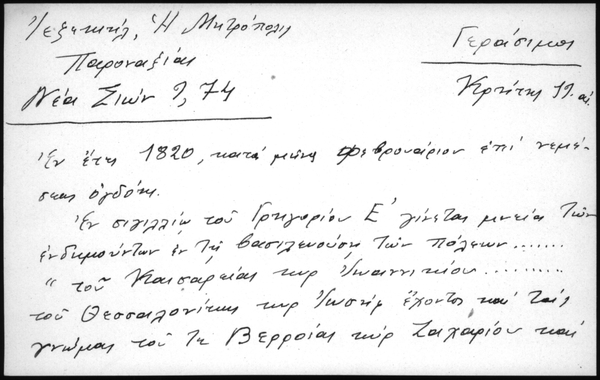 Ἰεζεκιήλ, Ἡ Μητρόπολις
Παροναξίας
Νέα Σιών 9, 74
Γεράσιμος
Κρήτης 19. αἰ.
Ἐν ἔτει 1820, κατά μῆνα Φεβρουάριον ἐπί νεμή-
σεως ὀγδόης.
Ἐν σιγιλλίῳ τοῦ Γρηγορίου Ε' γίνεται μνεία τῶν
ἐνδημούντων ἐν τῇ βασιλευούσῃ τῶν πόλεων .......
" τοῦ Καισαρείας κυρ Ἰωαννικίου ..........
τοῦ Θεσσαλονίκης κυρ Ἰωσήφ ἔχοντος καί τάς
γνώμας τοῦ τε Βερροίας κύρ Ζαχαρίου καί